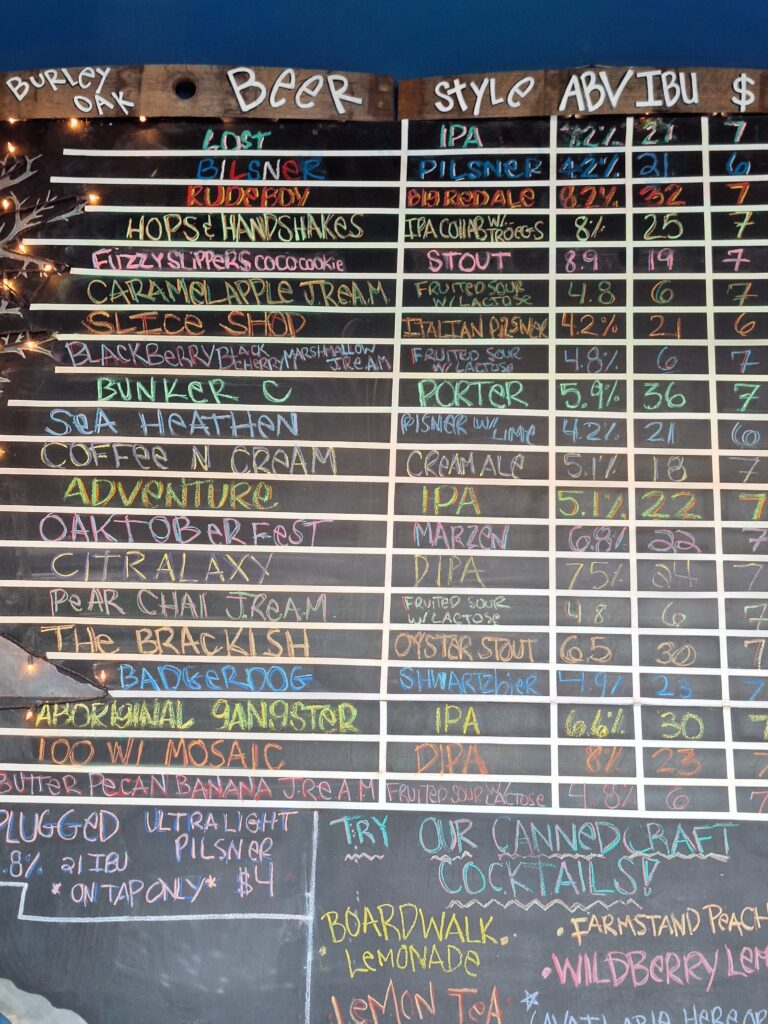 BURLEY OAK BEER STYLE ABV IBU $
LOST IPA 7.2% 27 7
BILSNER PILSNER 4.2% 21 6
RUDEBOY BIG RED ALE 8.2% 32 7
HOPS & HANDSHAKES IPA COLLAB W/ TROEGS 8% 25 7
FIZZY SLIPPERS COCO COOKIE STOUT 8.9 19 7
CARAMEL APPLE J.R.E.A.M. FRUITED SOUR W/ LACTOSE 4.8 6 7
SLICE SHOP ITALIAN PILSNER 4.2% 21 6
BLACKBERRY BLACK CHERRY MARSHMALLOW J.R.E.A.M FRUITED SOUR W/ LACTOSE 4.8% 6 7
BUNKER C PORTER 5.9% 36 7
SEA HEATHEN PISNER W/ LIME 4.2% 21 6
COFFEE N CREAM CREAM ALE 5.1% 18 7
ADVENTURE IPA 5.1% 22 7
OAKTOBERFEST MARZEN 6.8% 22 7
CITRALAXY DIPA 7.5% 24 7
PEAR CHAI J.R.E.A.M. FRUITED SOUR W/ LACTOSE 4.8 6 7
THE BRACKISH OYSTER STOUT 6.5 30 7
BADGERDOG SHWARTZBIER 4.9% 23 7
ABORIGINAL GANGSTER IPA 6.6% 30 7
100 W/ MOSAIC DIPA 8% 23 7
BUTTER PECAN BANANA J.R.E.A.M FRUITED SOUR W/ LACTOSE 4.8% 6 7
PLUGGED ULTRA LIGHT PILSNER
.8% 21 IBU
*ON TAP ONLY* $4
TRY OUR CANNED CRAFT
COCKTAILS!
BOARDWALK
LEMONADE
LEMON TEA
• FARMSTAND PEACH
• WILDBERRY LEM